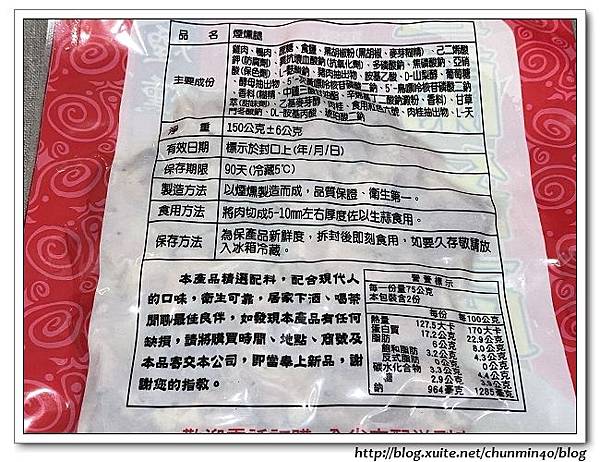 品 名 煙燻腿
主要成份
雞肉、鴨肉、蔗糖、食鹽、黑胡椒粉(黑胡椒、麥芽糊精)、己二烯酸
鉀(防腐劑)、異抗壞血酸鈉(抗氧化劑)、多磷酸鈉、焦磷酸鈉、亞硝
酸(保色劑)、L-麩酸鈉、豬肉抽出物、胺基乙酸、D-山梨醇、葡萄糖
、酵母抽出物、5'-次黃嘌呤核苷磷酸二鈉、5'-鳥嘌呤核苷磷酸二鈉
、香料(糊精、中鏈三酸甘油酯、辛烯基丁二酸鈉澱粉、香料)、甘草
萃(甜味劑)、乙基麥芽醇、肉桂、食用紅色六號、肉桂抽出物、L-天
門冬酸鈉、DL-胺基丙酸、琥珀酸二鈉
淨 重 150公克±6公克
有效日期 標示於封口上(年/月/日)
保存期限 90天(冷藏5℃)
製造方法 以煙燻製造而成，品質保證、衛生第一。
食用方法 將肉切成5-10mm左右厚度佐以生蒜食用。
保存方法 為保產品新鮮度，拆封後即刻食用，如要久存敬請放
入冰箱冷藏。
本產品精選配料，配合現代人
的口味，衛生可靠，居家下酒、喝茶
閒聊最佳良伴，如發現本產品有任何
缺損，請將購買時間、地點、商號及
本品寄交本公司，即當奉上新品，謝
謝您的指教。
營養標示
每一份量75公克
本包裝含2份
每份 每100公克
熱量 127.5大卡 170大卡
蛋白質 17.2公克 22.9公克
脂肪 6公克 8.0公克
飽和脂肪 3.2公克 4.3公克
反式脂肪 0公克 0公克
碳水化合物 3.3公克 4.4公克
糖 2.9公克 3.9公克
鈉 964毫克 1285毫克
http://blog.xuite.net/chunmin40/blog